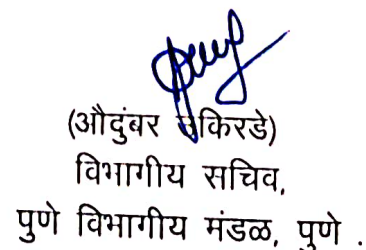 (औदुंबर उकिरडे)
विभागीय सचिव,
पुणे विभागीय मंडळ, पुणे .